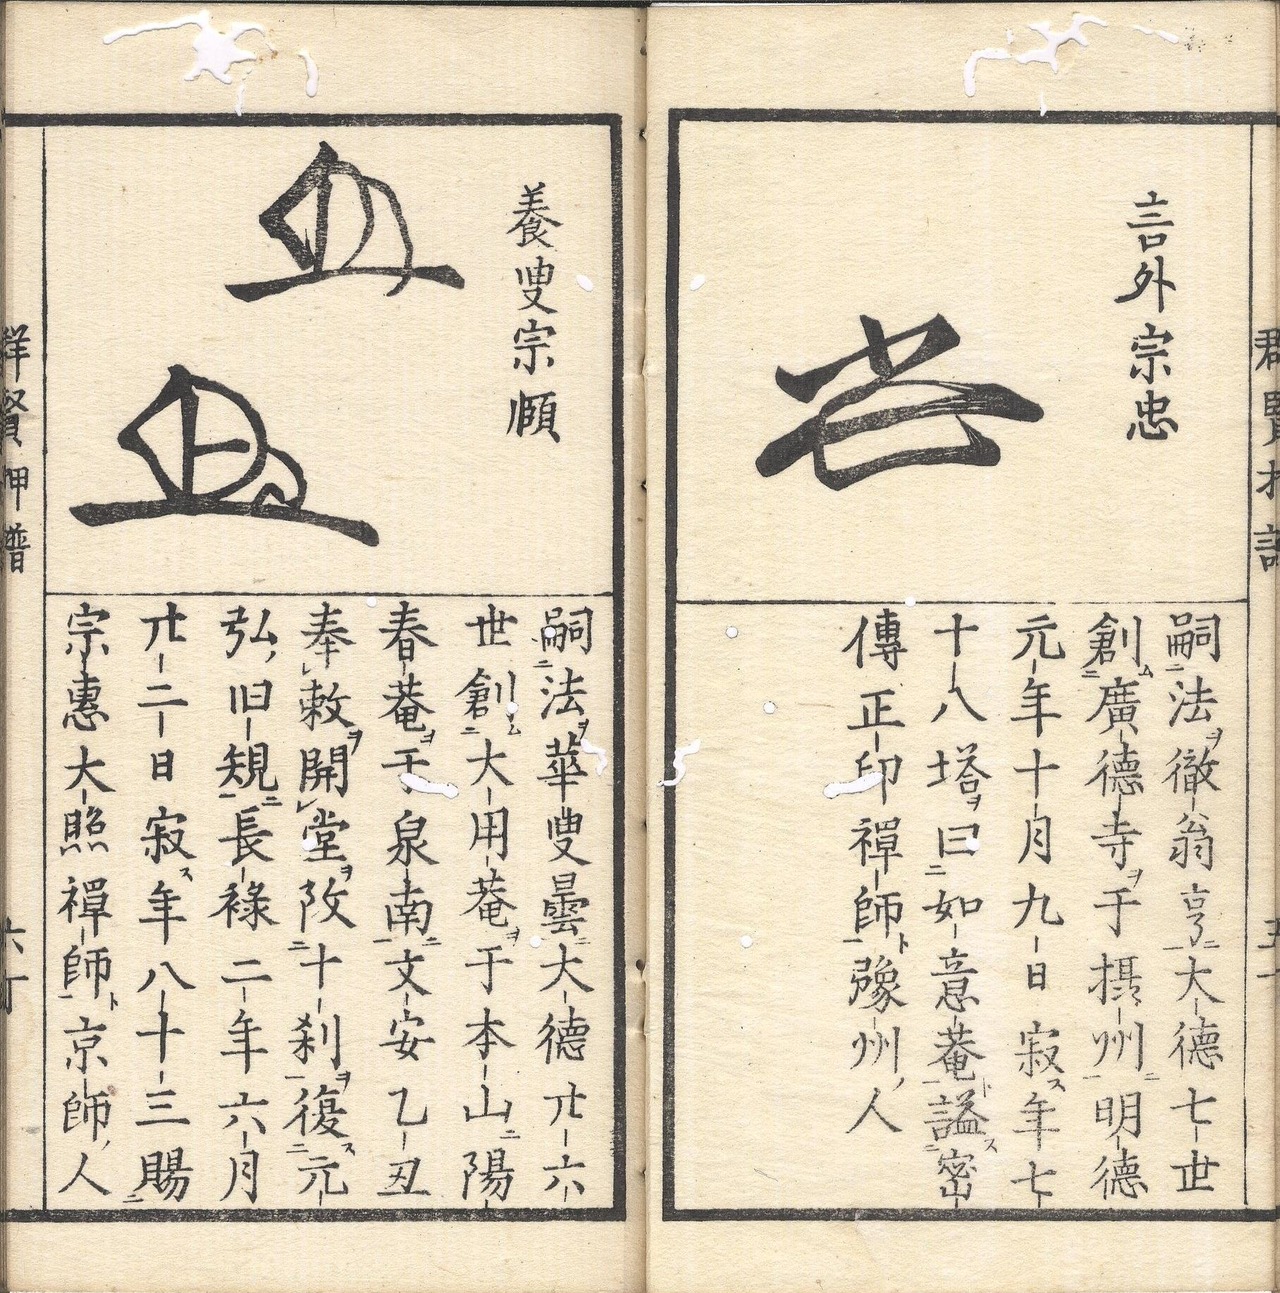 言外宗忠
嗣法徹翁亨大德七世
創廣德寺于摂州明德
元年十月九日寂年七
十八塔曰如意菴謚密
傳正印禪師豫州人
養叟宗頤
嗣法華叟曇大德卄六
世創大用菴于本山陽
春菴于泉南文安乙丑
奉敕開堂改十刹復元
弘旧規長禄二年六月
卄二日寂年八十三賜
宗惠大照禪師京師人
群賢押譜
六丁